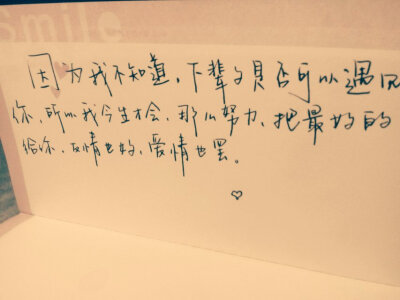 Smile
因为我不知道，下辈子是否可以遇见
你，所以我今生才会，那么努力，把最好的
给你，友情也好，爱情也罢。